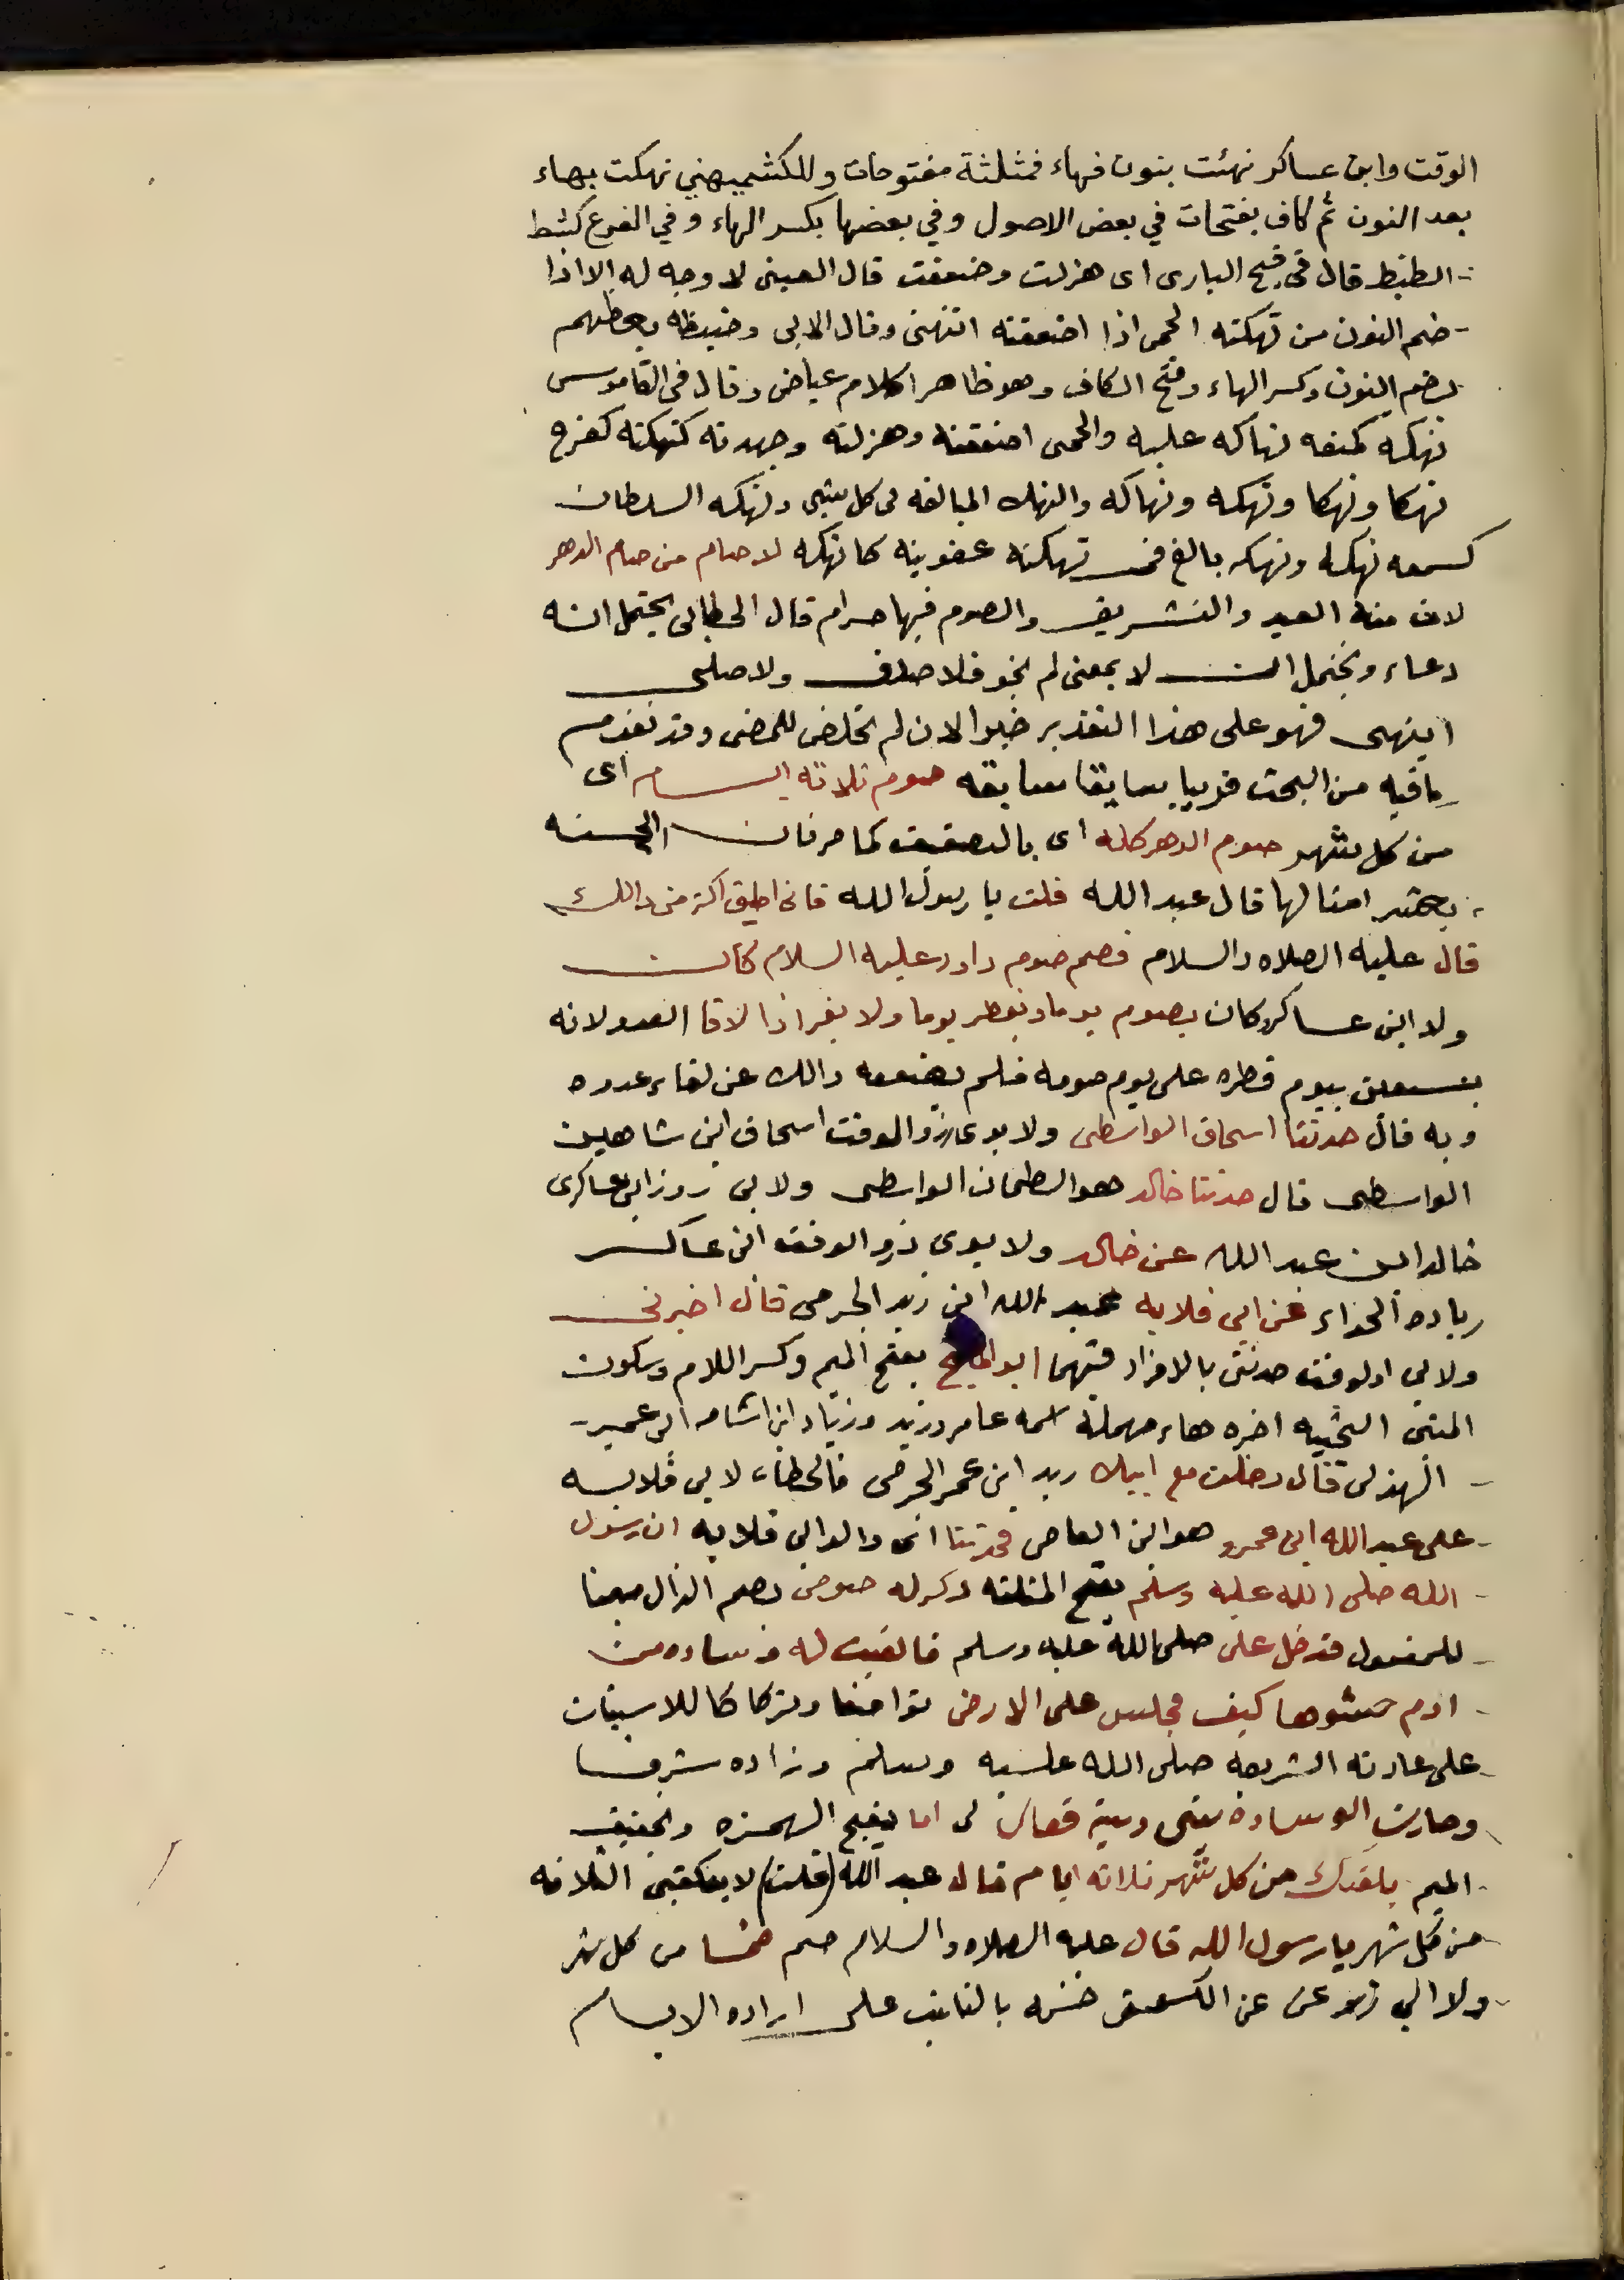 الوقت وابن عساكر نهئت بنون فهاء فمثلثة مفتوحات وللكشميهني نهكت بهاء
بعد النون ثم كاف بفتحات في بعض الاصول وفي بعضها بكسر الهاء وفي الفرع كشط
الطبط قال في فتح البارى اى هزلت وضعفت قال العينى لا وجه له الا اذا
ضم النون من نهكته الحمى اذا اضعفته انتهى وقال الابى وضبطه بعظهم
بضم النون وكسر الهاء وفتح الكاف وهو ظاهر اكلام عياض وقال فى القاموس
نهكه كمنعه نهاكه عليه والحمى اضعفته وهزلته وجهدته كنهكته كفرح
نهكا ونهكا ونهكه ونهاكه والنهك المبالغه فى كل شى ونهكه السلطان
كسمعه نهكه ونهكه بالغ فى نهكته عقوبته كانهكه لا صام من صام الدهر
لان منه العيد والتشريق والصوم فيها حرام قال الخطابى يحتمل انه
دعاء ويحتمل ان لا بمعنى لم نحو فلا صدق ولا صلى
اينهى فهو على هذا التقدير خبر الان لم تخلص للمضى وقد تقدم
مافيه من البحث قريبا صوم ثلاثه ايام اى
من كل شهر صوم الدهر كله اى بالتضعيف كما مر فان الحسنه
بعشر امثالها قال عبد الله قلت يا رسول الله فانى اطيق اكثر من دالك
قال عليه الصلاه والسلام فصم صوم داود عليه السلام كان
ولا ابن عساكر وكان يصوم يوما ويفطر يوما ولا يفر اذا لاقا العدو لانه
يستعين بيوم فطره على يوم صومه فلم يضعفه دالك عن لقاء عدوه
وبه قال حدثنا اسحاق الواسطى ولا بوى ذر والوقت اسحاق ابن شاهين
الواسطى قال حدثنا خالد هو الطحان الواسطى ولابى ذر وابن عساكر
خالد ابن عبد الله عن خالد ولا بوى ذر والوقت ابن عساكر
الحذاء عن ابى قلابه عبد الله ابن زيد الجرمى قال اخبرنى
ولابى الوقت حدثنى بالافراد فيهما ابو المليح بفتح الميم وكسر اللام وسكون
المثنى التحتيه اخره هاء مهمله اسمه عامر وزيد وزياد ابن اسامه ابن عمير
الهذلى قال دخلت مع ابيك زيد ابن عمر الجرمى فالخطاب لابى قلابه
على عبد الله ابن عمرو هو ابن العاص فحدثنا اى والد ابى قلابه ان رسول
الله صلى الله عليه وسلم ذكر له صومى بضم الذال مبينا
للمفعول فدخل على صلى الله عليه وسلم فالقيت له وساده من
ادم حشوها ليف فجلس على الارض تواضعا وتركا للاستئثار
على عادته الشريفه صلى الله عليه وسلم وزاده شرفا
وصارت الوساده بينى وبينه فقال لى اما بفتح الهمزه وتخفيف
الميم يكفيك من كل شهر ثلاثه ايام قال عبد الله (قلت) لا يكفينى الثلاثه
من كل شهر يا رسول الله قال عليه الصلاه والسلام صم خمسا من كل شهر
ولا ابي ذر عن الكشميهنى خمسه بالتانيث على اراده الايام